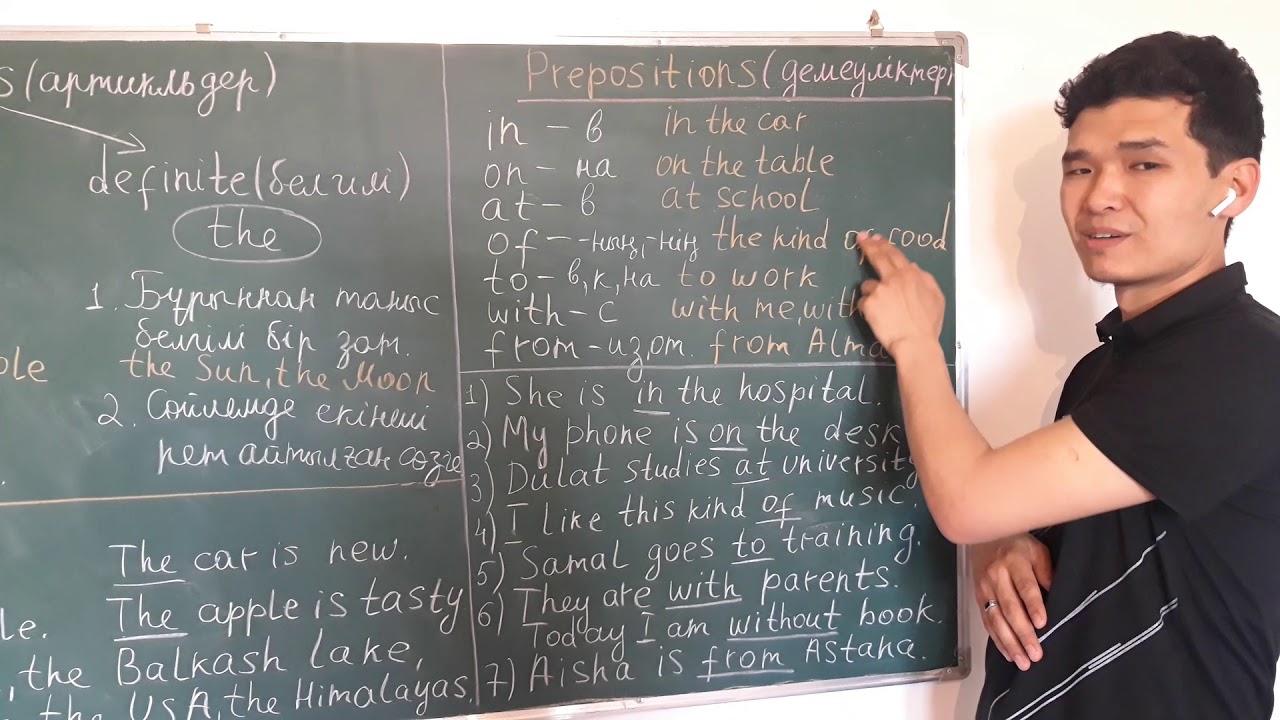 s (артикльдер)
definite (белгілі)
the
1. Бұрыннан таныс
белгілі бір зат.
the Sun, the Moon
2. Сөйлемде екінші
рет айтылған сөзге
The car is new.
The apple is tasty
the Balkash lake,
the USA, the Himalayas.
Prepositions (демеуліктер
in – в in the car
on – на on the table
at – в at school
of – -ның, -нің the kind of food
to – в, к, на to work
with – с with me, with
from – из, от. from Alma
1) She is in the hospital.
2) My phone is on the desk
3) Dulat studies at university
4) I like this kind of music.
5) Samal goes to training.
6) They are with parents.
Today I am without book.
7) Aisha is from Astana.